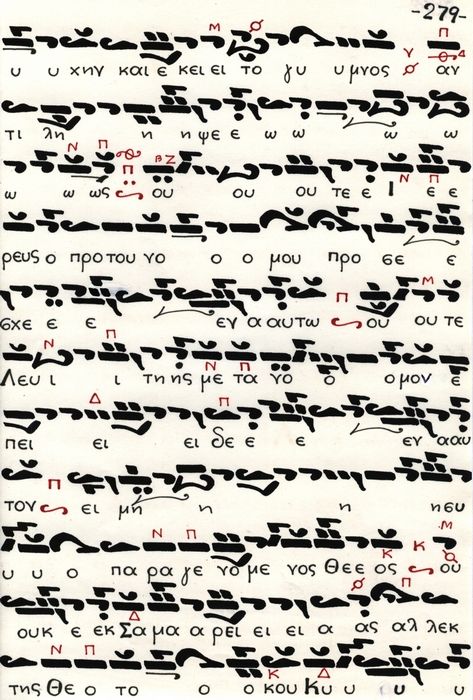 -279-
υ υ χην και ε κει ει το γυ υ μνος αν
τι λη η η ψε ε ω ω ω ω
ω ω ως ου ου ου τε ε Ι ε ε
ρευς ο προ του νο ο ο μου προ σε ε
σχε ε ε εγ α αυτω ου ου τε
Λευ ι ι τη ης με τα νο ο ο μον ε
πει ει ει δε ε ε ε εγ α αυ
τον ει μη η η η ευ
υ υ ο πα ρα γε νο με νος Θε ε ος ου
ουκ ε εκ Σα μα α ρει ει ει α ας αλ λεκ
της Θε ο το ο ο κου Κυ υ υ υ υ